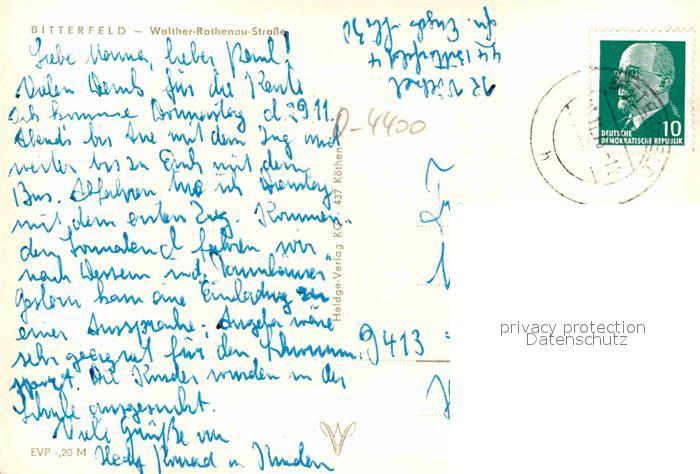 BITTERFELD – Walther-Rathenau-Straße
Liebe Mama, lieber Paul!
Vielen Dank für die Karte
ich komme Donnerstag d. 29.11.
Abends bis Aue mit dem Zug und
weiter bis zu Euch mit dem
Bus. Abfahren muß ich Dienstag
mit dem ersten Zug. Kommen-
den Sonnabend fahren wir
nach Dessau in d. „Tannhäuser“
Gestern kam eine Einladung zu
einer Aussprache, Angela wäre
sehr geeignet für den
sport. Die Kinder wurden in der
Schule ausgesucht.
Viele Grüße von
Konrad u. Kinder
EVP -,20 M
44 Bitterfeld 4
D-4400
Heldge-Verlag KG · 437 Köthen
9413
10
DEUTSCHE
DEMOKRATISCHE REPUBLIK
h
privacy protection
Datenschutz